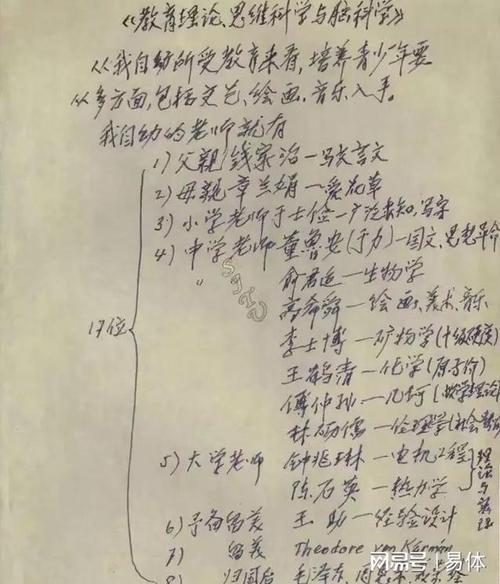 《教育理论、思维科学与脑科学》
从我自幼所受教育来看,培养青少年要
从多方面,包括文艺、绘画、音乐入手。
我自幼的老师就有
1) 父親 钱家治—写文言文
2) 母親 章兰娟—爱花草
3) 小学老师 于士俭—广泛求知,写字
4) 中学老师 董鲁安(于力)—国文、思想革命
〃 俞君适—生物学
高希舜—绘画、美术、音乐
李士博—矿物学(十级硬度)
王鹤清—化学(原子价)
傅仲孙—几何(数学理论
林砺儒—伦理学(社会
17位
5) 大学老师 钟兆琳—电机工程
陈石英—热力学
理论与实际
6) 予备留美 王助—经验设计
7) 留美 Theodore von Kármán
8) 归国后 毛泽东
网易号 | 易体